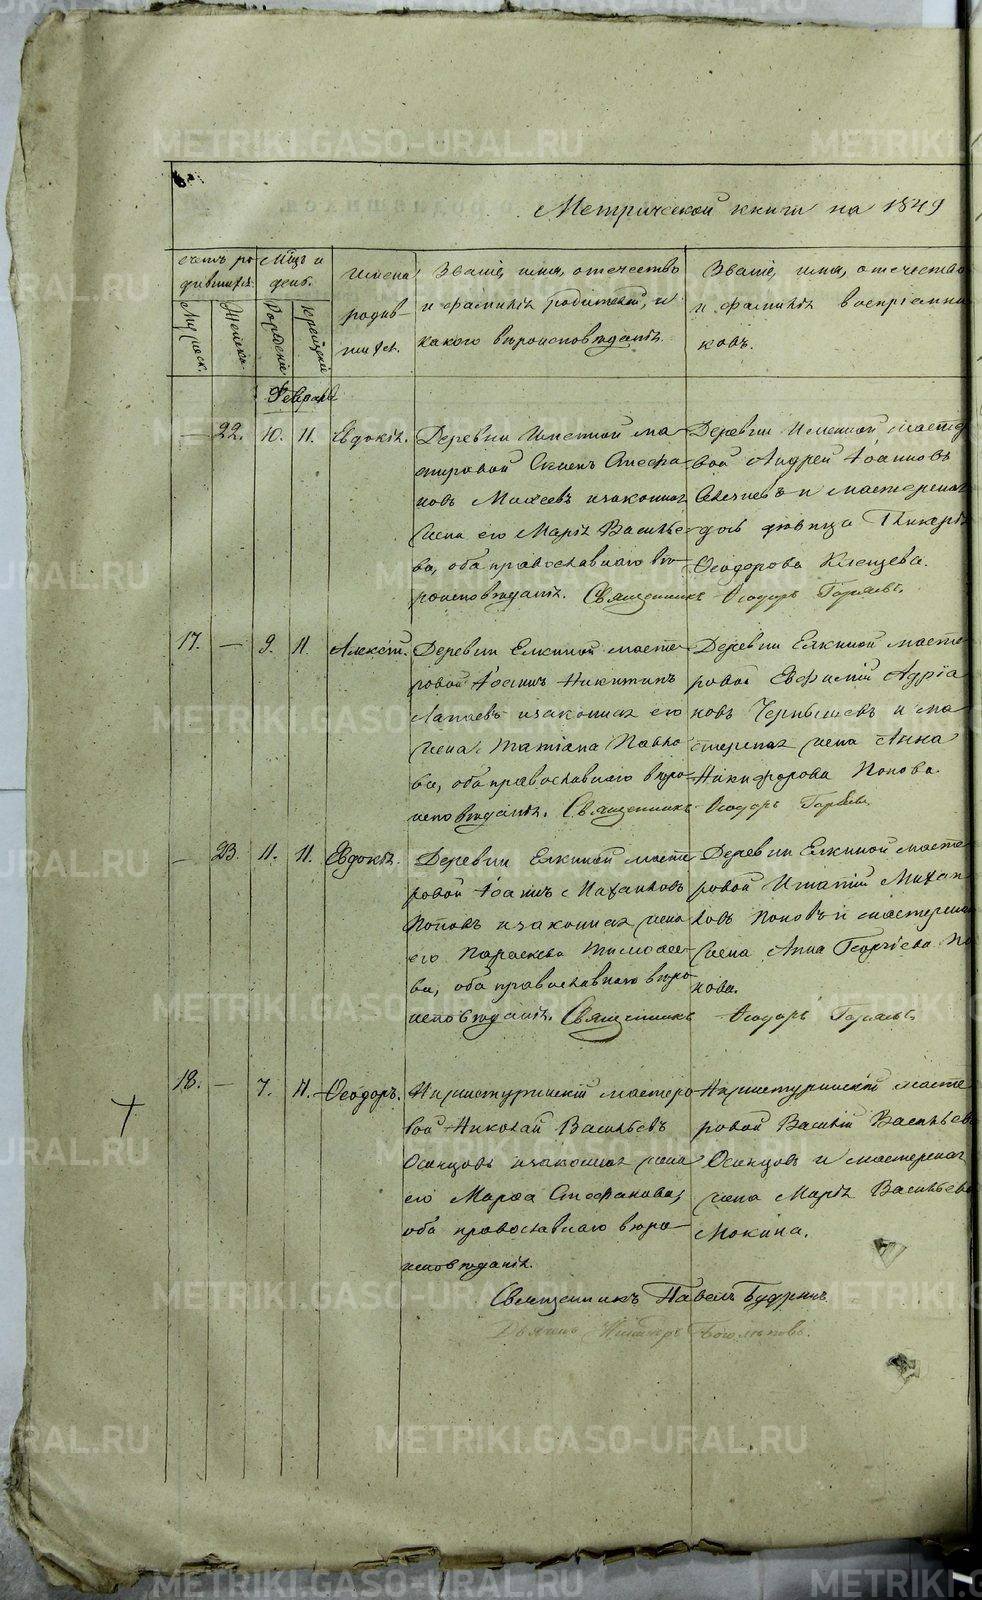 Метрической книги на 1849
счетъ ро
дившихся.
Мцъ и
день.
Имена
родив-
шихся.
Званіе, имя, отечество
и фамилія родителей, и
какого вѣроисповѣданія.
Званіе, имя, отечество
и фамилія воспріемни
ковъ.
Мужеск.
Женска.
Рожденія
Крещенія
Февраль
— 22. 10. 11. Евдокія.
Деревни мас
тировой Стефа
новъ Михеевъ и законная
жена его Марія Василье
ва, оба православнаго вѣ
роисповѣданія. Священникъ Ѳеодоръ
Деревни мастеро
вой Андрей Іоанновъ
и мастерская
дочь дѣвица Гликерія
Ѳеодорова Клепцева.
17. — 9. 11. Алексій.
Деревни Елкиной масте
ровой Іоаннъ Никитинъ
Лаптевъ и законная его
жена Татіана Павло
ва, оба православнаго вѣро
исповѣданія. Священникъ Ѳеодоръ
Деревни Елкиной масте
ровой Евфимій Адріа
новъ Чернышевъ и ма
стерская жена Анна
Никифорова Попова.
— 23. 11. 11. Евдокія.
Деревни Елкиной масте
ровой Іоаннъ Михаиловъ
Поповъ и законная жена
его Параскева Тимоѳее
ва, оба православнаго вѣро
исповѣданія. Священникъ Ѳеодоръ
Деревни Елкиной масте
ровой Игнатій Михаи
ловъ Поповъ и мастерская
жена Анна Георгіева По
пова.
18. — 7. 11. Ѳеодоръ.
Нижнетуринскій мастеро
вой Николай Васильевъ
Осинцовъ и законная жена
его Марѳа Стефанова,
оба православнаго вѣро
исповѣданія.
Нижнетуринскій масте
ровой Василій Васильевъ
Осинцовъ и мастерская
жена Марія Васильева
Мокина.
Священникъ Павелъ Будринъ
METRIKI.GASO-URAL.RU